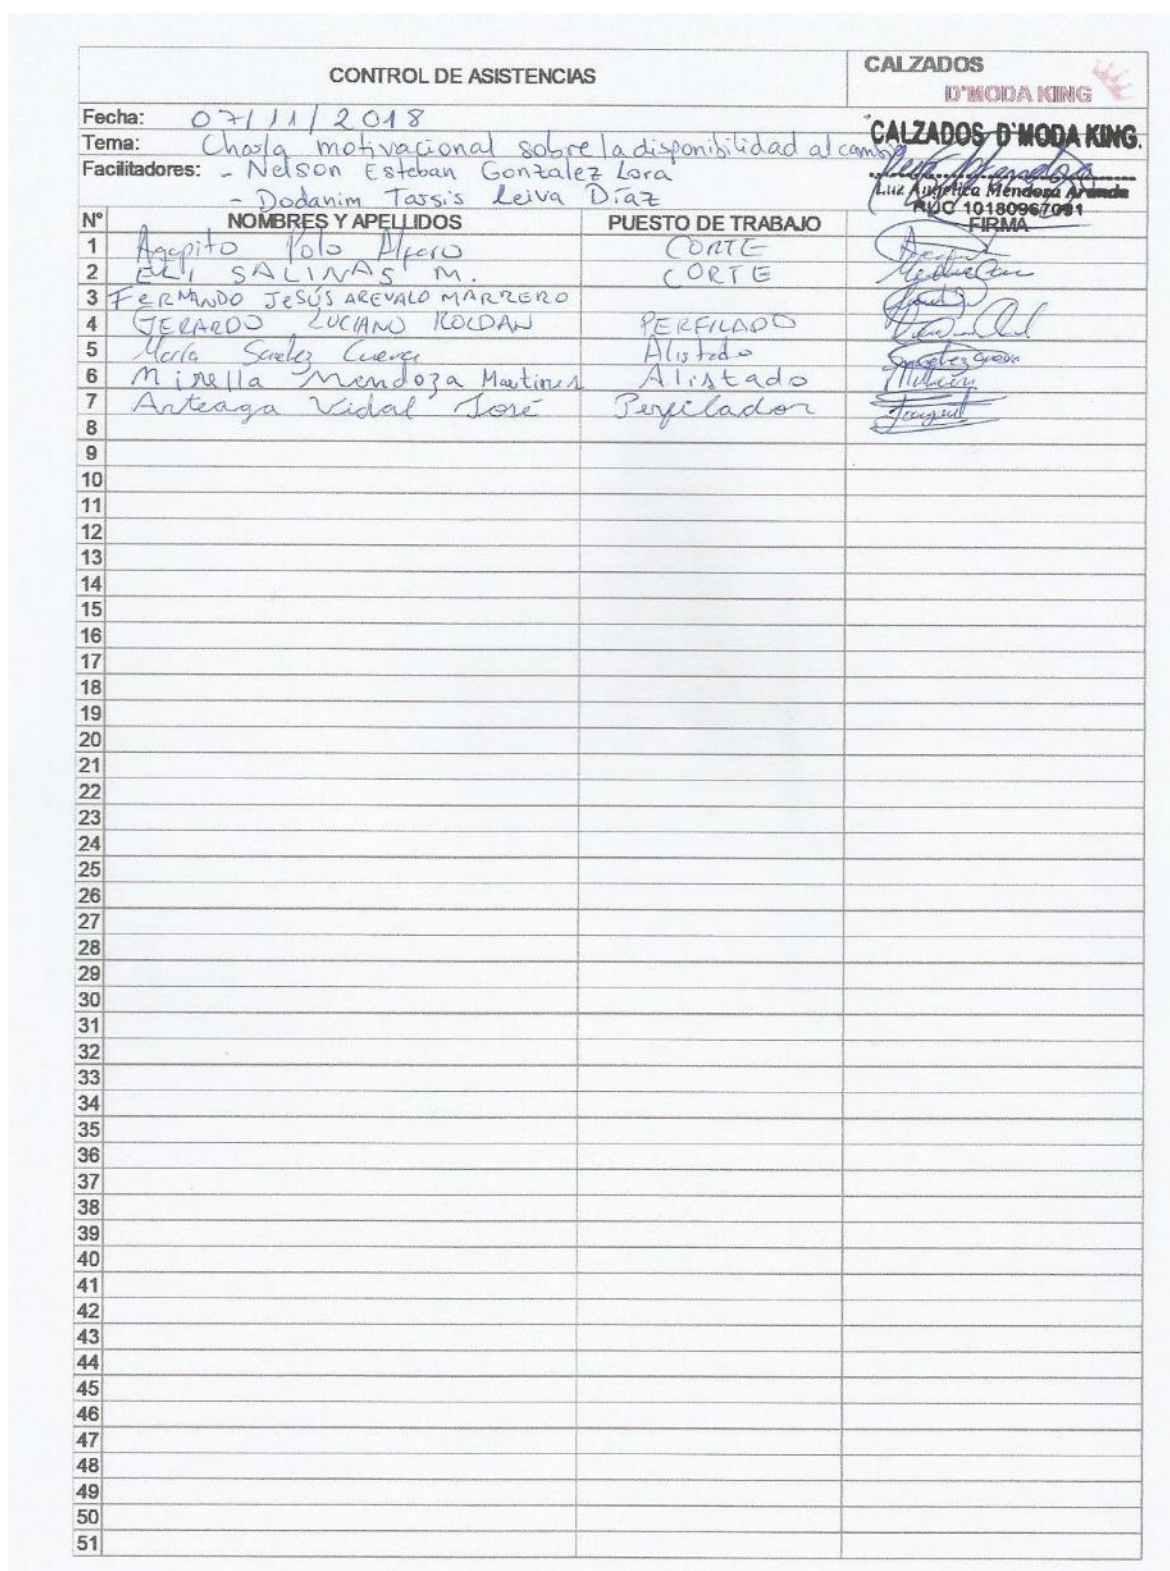 CONTROL DE ASISTENCIAS
CALZADOS
D'MODA KING
Fecha: 07/11/2018
CALZADOS D'MODA KING.
Tema: Charla motivacional sobre la disponibilidad al cambio
Facilitadores: - Nelson Esteban Gonzalez Lora
- Dodanim Tassis Leiva Díaz
Luz Angelica Mendoza Aranda
RUC 10180967091
N° NOMBRES Y APELLIDOS PUESTO DE TRABAJO FIRMA
1 Agapito Polo Alfaro CORTE
2 ELI SALINAS M. CORTE
3 FERNANDO JESÚS AREVALO MARRERO
4 GERARDO LUCIANO ROLDAN PERFILADO
5 María Cueva Alistado
6 Mirella Mendoza Martines Alistado
7 Arteaga Vidal José Perfilador
8
9
10
11
12
13
14
15
16
17
18
19
20
21
22
23
24
25
26
27
28
29
30
31
32
33
34
35
36
37
38
39
40
41
42
43
44
45
46
47
48
49
50
51